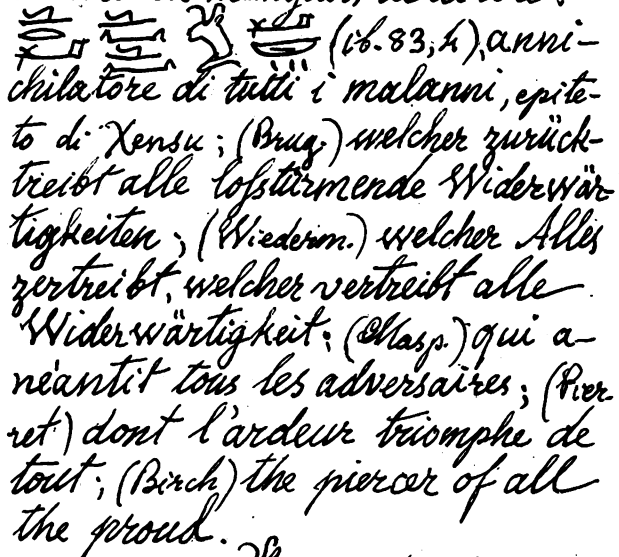 (ib. 83, h), anni-
chilatore di tutti i malanni, epite-
to di Xensu; (Brug.) welcher zurück-
treibt alle losstürmende Widerwär-
tigkeiten; (Wiedem.) welcher Alles
zertreibt, welcher vertreibt alle
Widerwärtigkeit; (Masp.) qui a-
néantit tous les adversaires; (Pier-
ret) dont l'ardeur triomphe de
tout; (Birch) the piercer of all
the proud.